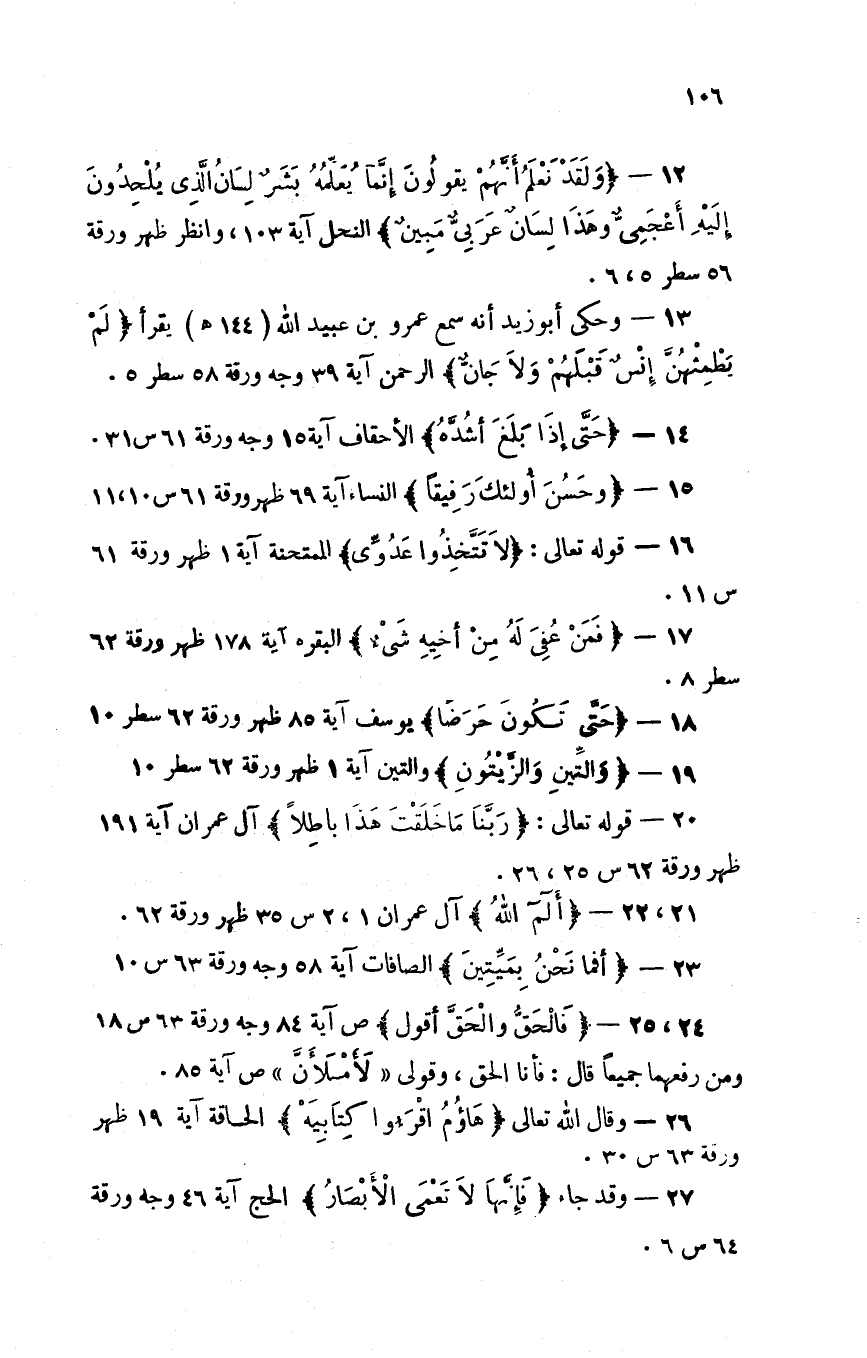 ١٠٦
١٢ — ﴿وَلَقَدْ نَعْلَمُ أَنَّهُمْ يقولُونَ إِنَّمَا يُعَلِّمُهُ بَشَرٌ لِسَانُ الَّذِى يُلْحِدُونَ
إِلَيْهِ أَعْجَمِىٌّ وهَذَا لِسَانٌ عَرَبِىٌّ مُبِينٌ﴾ النحل آية ١٠٣ ، وانظر ظهر ورقة
٥٦ سطر ٥ ، ٦ .
١٣ — وحكى أبو زيد أنه سمع عمرو بن عبيد الله ( ١٤٤ ه ) يقرأ ﴿ لَمْ
يَطْمِثْهُنَّ إِنْسٌ قَبْلَهُمْ وَلاَ جَانٌّ﴾ الرحمن آية ٣٩ وجه ورقة ٥٨ سطر ٥ .
١٤ — ﴿حَتَّى إِذَا بَلَغَ أشُدَّهُ﴾ الأحقاف آية ١٥ وجه ورقة ٦١ س ٣١ .
١٥ — ﴿وحَسُنَ أُولئك رَفِيقاً ﴾ النساء آية ٦٩ ظهر ورقة ٦١ س ١٠ ، ١١
١٦ — قوله تعالى : ﴿لاَ تَتَّخِذُوا عَدُوِّى﴾ الممتحنة آية ١ ظهر ورقة ٦١
س ١١ .
١٧ — ﴿ فَمَنْ عُفِىَ لَهُ مِنْ أخيهِ شَىْءٌ ﴾ البقره آية ١٧٨ ظهر ورقة ٦٢
سطر ٨ .
١٨ — ﴿حَتَّى تَكُونَ حَرَضًا﴾ يوسف آية ٨٥ ظهر ورقة ٦٢ سطر ١٠
١٩ — ﴿ وَالتِّينِ وَالزَّيْتُونِ ﴾ والتين آية ١ ظهر ورقة ٦٢ سطر ١٠
٢٠ — قوله تعالى : ﴿ رَبَّنَا مَا خَلَقْتَ هَذَا باطِلاً ﴾ آل عمران آية ١٩١
ظهر ورقة ٦٢ س ٢٥ ، ٢٦ .
٢١ ، ٢٢ — ﴿ أَلَمَ اللهُ ﴾ آل عمران ١ ، ٢ س ٣٥ ظهر ورقة ٦٢ .
٢٣ — ﴿ أفما نَحْنُ بِمَيِّتِينَ ﴾ الصافات آية ٥٨ وجه ورقة ٦٣ س ١٠
٢٤ ، ٢٥ — ﴿ فَالْحَقُّ والْحَقَّ أقول ﴾ ص آية ٨٤ وجه ورقة ٦٣ س ١٨
ومن رفعهما جميعاً قال : فأنا الحق ، وقولى « لَأَمْلَأَنَّ » ص آية ٨٥ .
٢٦ — وقال الله تعالى ﴿ هَاؤُمُ اقْرَءوا كِتَابِيَهْ ﴾ الحاقة آية ١٩ ظهر
ورقة ٦٣ س ٣٠ .
٢٧ — وقد جاء ﴿ فَإِنَّهَا لاَ تَعْمَى الْأَبْصَارُ ﴾ الحج آية ٤٦ وجه ورقة
٦٤ س ٦ .